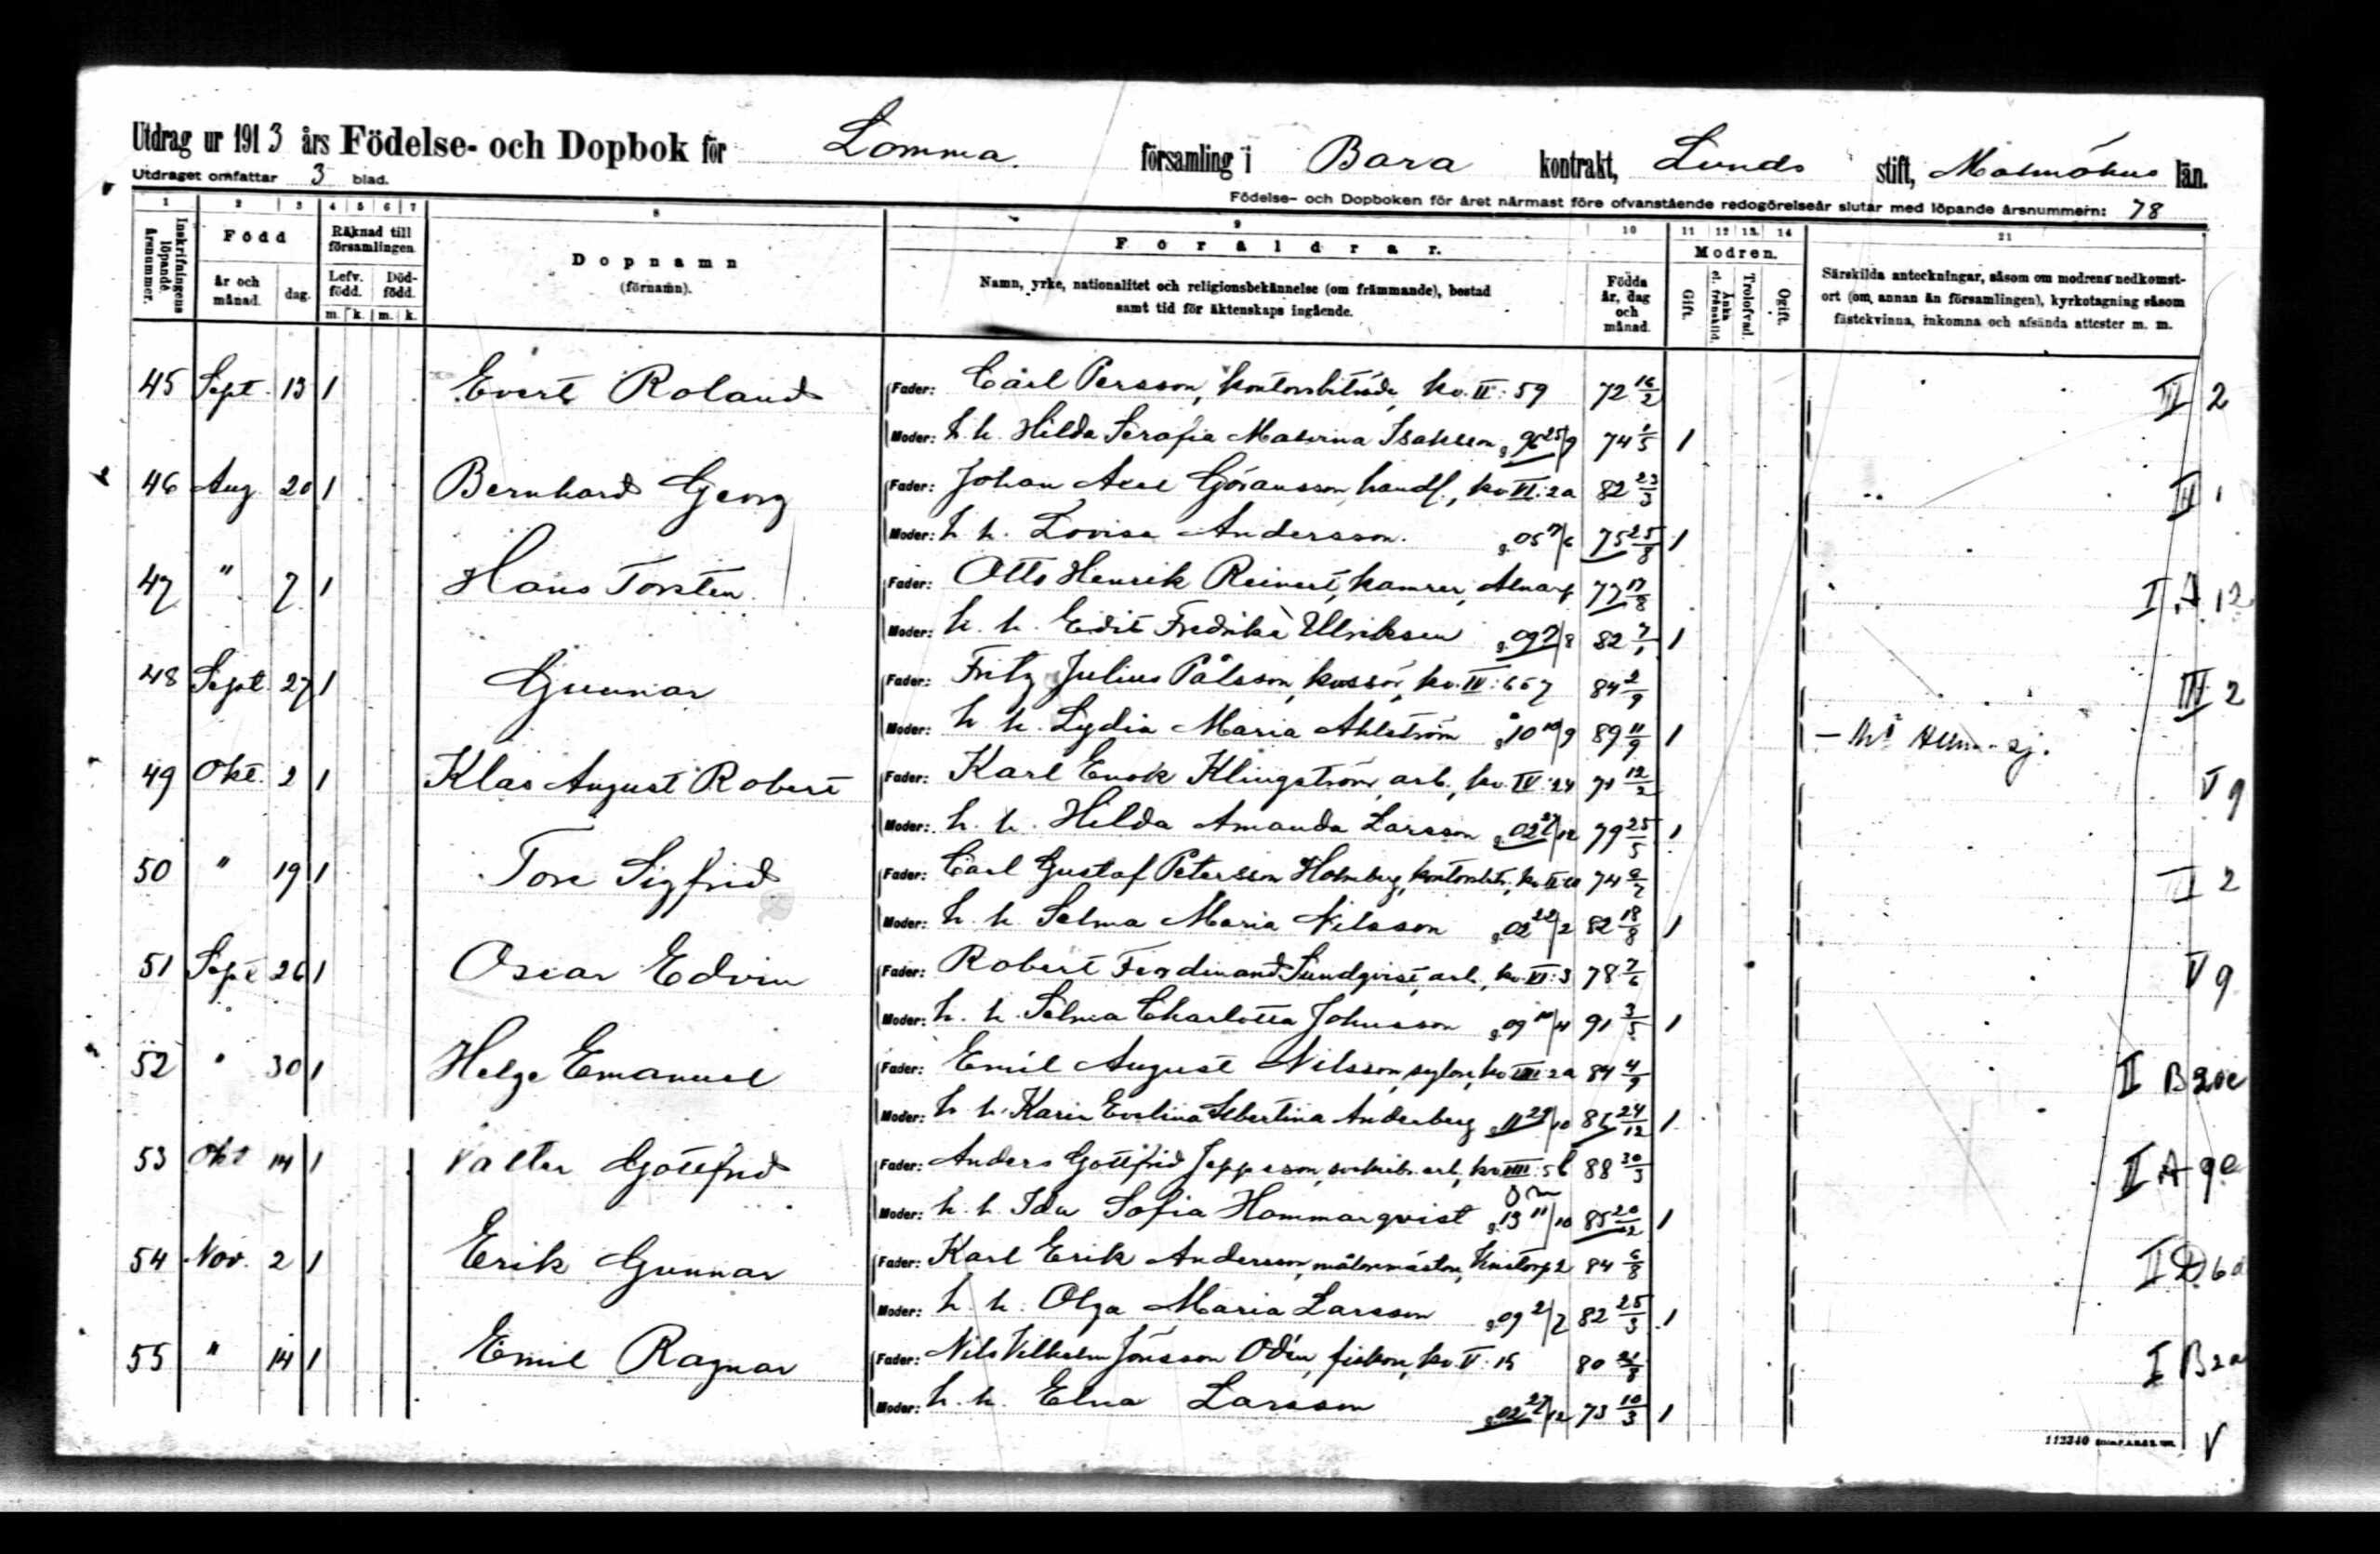 Utdrag ur 1913 års Födelse- och Dopbok för Lomma. församling i Bara kontrakt, Lunds stift, Malmöhus län.
Utdraget omfattar 3 blad.
Födelse- och Dopboken för året närmast före ofvanstående redogörelseår slutar med löpande årsnummern: 78
1 2 3 4 5 6 7 8 9 10 11 12 13 14 21
Inskrifningens löpande årsnummer.
Född
år och månad. dag.
Räknad till församlingen
Lefv. född. Död-född.
m. k. m. k.
Dopnamn
(förnamn).
Föräldrar.
Namn, yrke, nationalitet och religionsbekännelse (om främmande), bostad
samt tid för äktenskaps ingående.
Födda år, dag och månad.
Modren.
Gift. Änka el. frånskild. Trolofvad. Ogift.
Särskilda anteckningar, såsom om modrens nedkomst-
ort (om annan än församlingen), kyrkotagning såsom
fästekvinna, inkomna och afsända attester m. m.
45 Sept. 13 1 Evert Roland Fader: Carl Persson, kontorsbiträde, kv. II: 59 72 16/2 II 2
Moder: h. h. Hilda Serafia Isaksson g. 25/9 74 1/5 1
46 Aug 20 1 Bernhard Georg Fader: Johan Axel Göransson, handl., kv. VI: 2a 82 23/3 II 1
Moder: h. h. Lovisa Andersson. g. 05 7/6 75 25/8 1
47 " 7 1 Hans Torsten Fader: Otto Henrik Reinert, kamrer, Alnarp 77 17/8 I A 12
Moder: h. h. Edit Fredrika Ulriksen g. 09 7/8 82 7/1 1
48 Sept. 27 1 Gunnar Fader: Fritz Julius Pålsson, kv. IV: 667 84 2/9 III 2
Moder: h. h. Lydia Maria Ahlström g. 10 10/9 89 11/9 1
49 Okt. 2 1 Klas August Robert Fader: Karl Enok Klingström, arb., kv. IV: 24 71 12/2 V 9
Moder: h. h. Hilda Amanda Larsson g. 02 27/12 79 25/5 1
50 " 19 1 Tore Sigfrid Fader: Carl Gustaf Petersson Holmberg, kontorsbitr., kv. 74 2/7 II 2
Moder: h. h. Selma Maria Nilsson g. 02 22/2 82 18/8 1
51 Sept 26 1 Oscar Edvin Fader: Robert Ferdinand Sundqvist, arb., kv. VI: 3 78 7/6 V 9
Moder: h. h. Selma Charlotta Johnsson g. 09 10/4 91 3/5 1
52 " 30 1 Helge Emanuel Fader: Emil August Nilsson, kv. VIII 2a 84 4/9 II B 20e
Moder: h. h. Karin Evelina Albertina Anderberg g. 11 29/10 86 24/12 1
53 Okt 14 1 Valter Gottfrid Fader: Anders Gottfrid Jeppsson, arb., kv. VIII: 5b 88 30/3 II A 9e
Moder: h. h. Ida Sofia Hammarqvist g. 13 11/10 85 20/12 1
54 Nov. 2 1 Erik Gunnar Fader: Karl Erik Andersson, målarmästare, Knstorp 2 84 6/8 II D 6a
Moder: h. h. Olga Maria Larsson g. 09 2/7 82 25/3 1
55 " 14 1 Emil Ragnar Fader: Nils Vilhelm Jönsson Odin, fiskare, kv. V: 15 80 I B 2a
Moder: h. h. Elna Larsson g. 02 27/12 73 10/3 1
112340
V